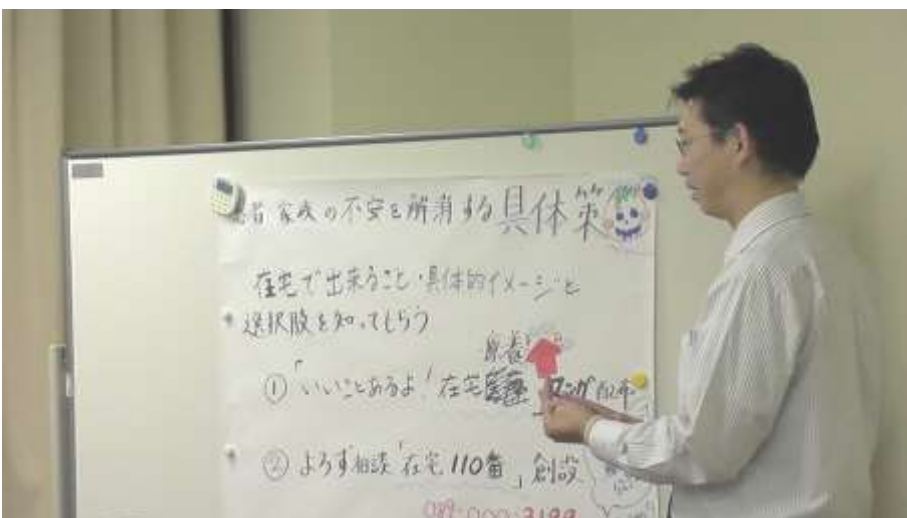 者家族の不安を解消する具体策
在宅で出来ること・具体的イメージと
選択肢を知ってもらう
療養
①「いいことあるよ!在宅
② よろず相談「在宅110番」創設